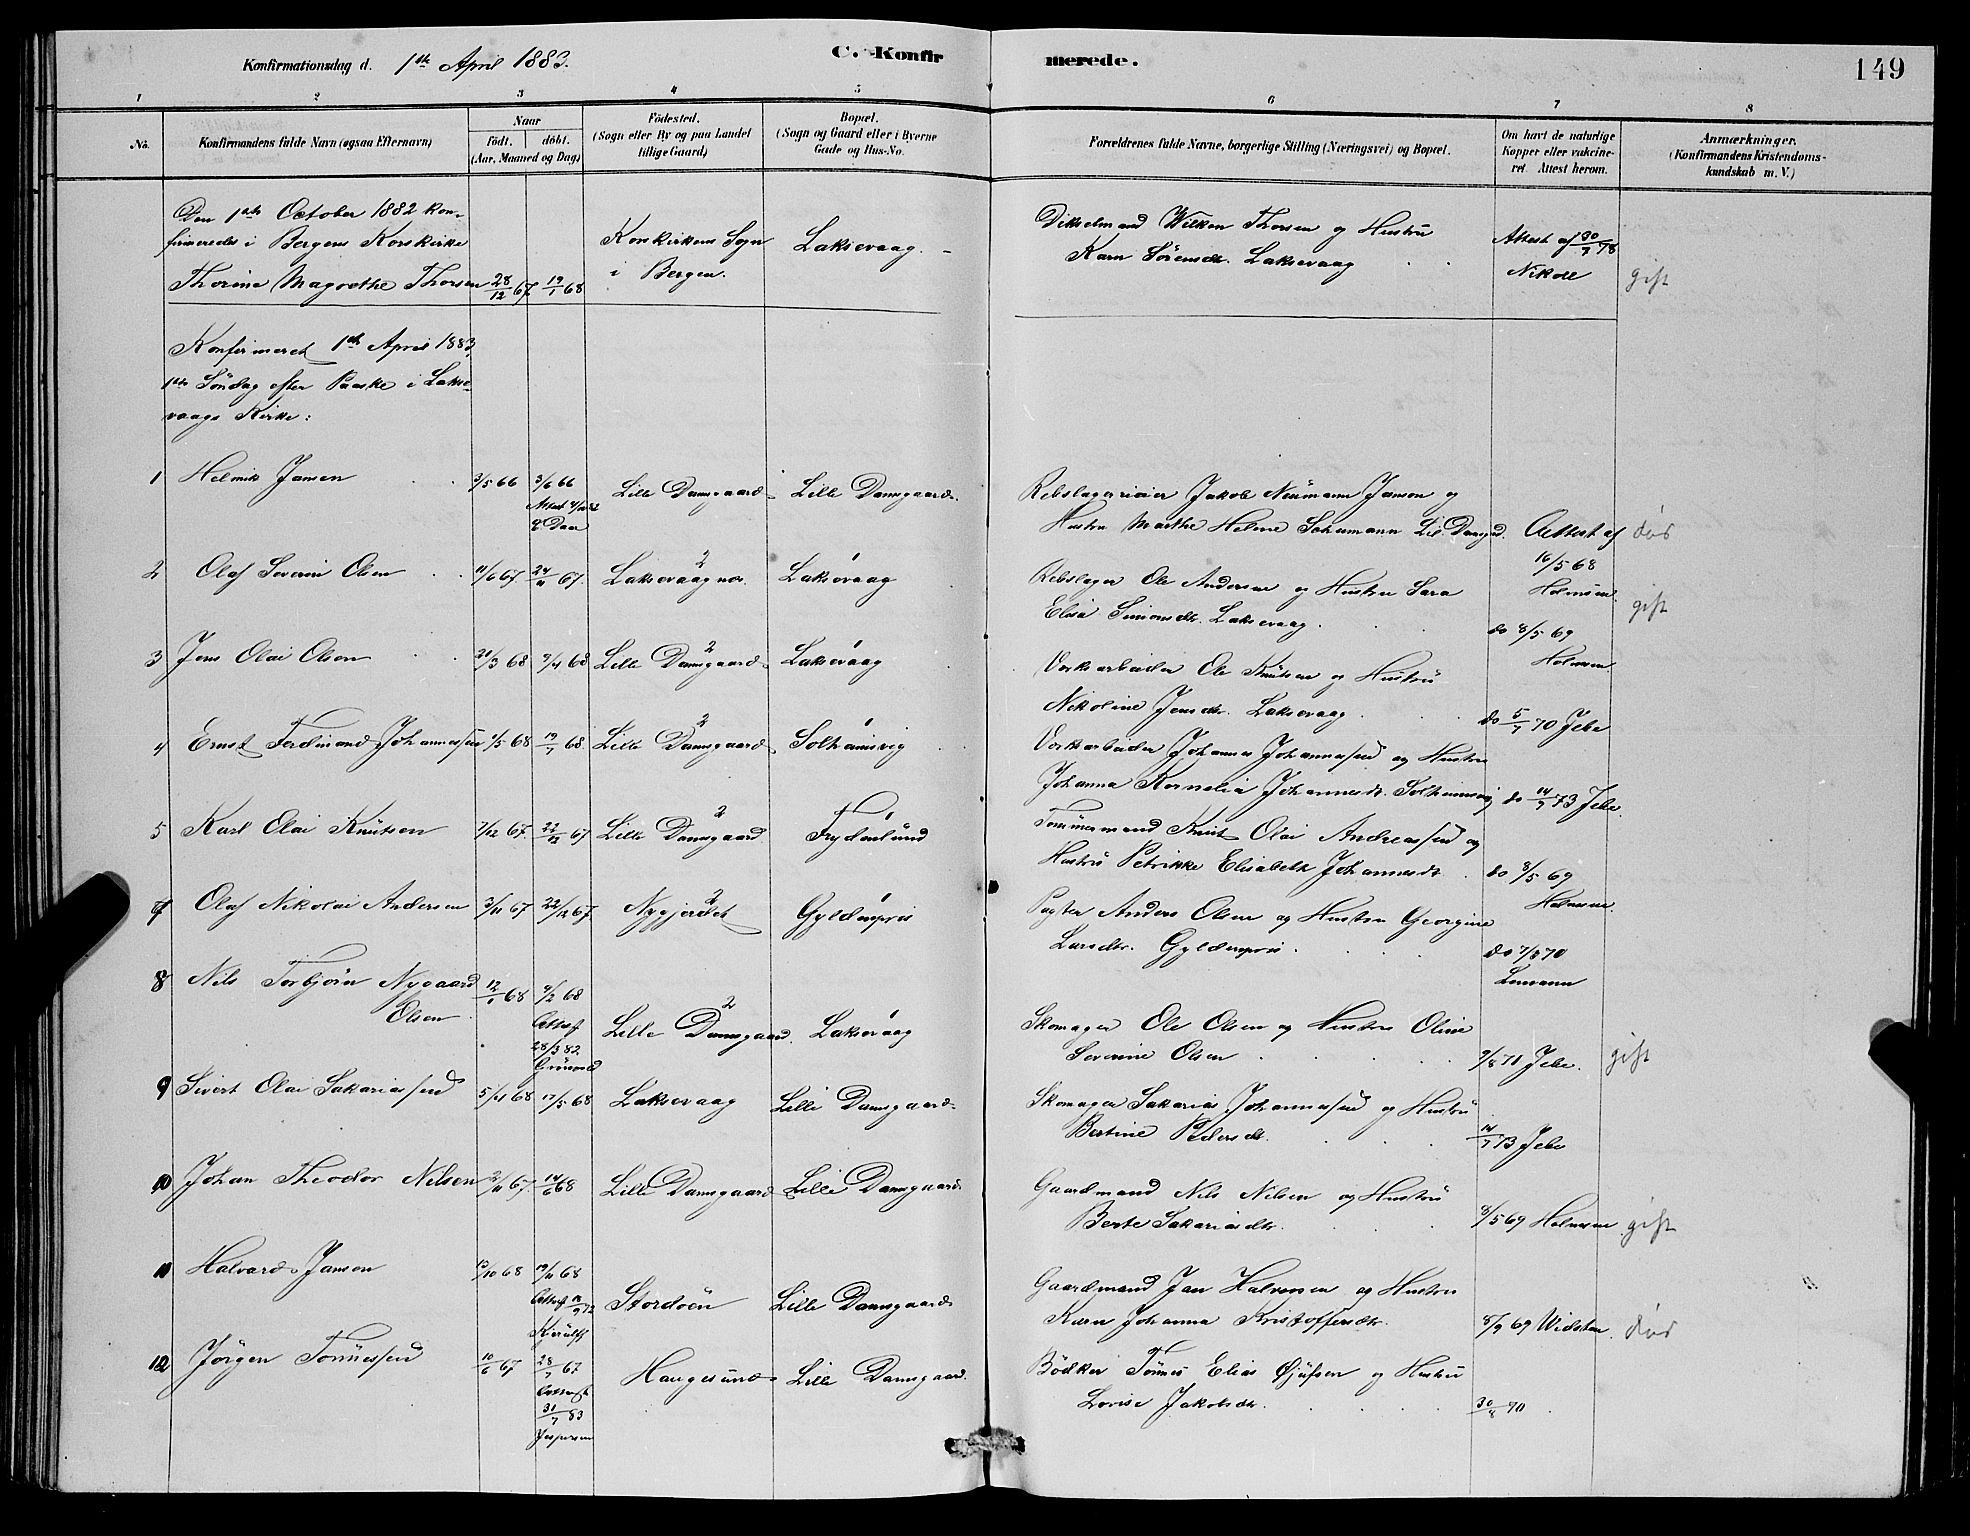 Konfirmationsdag d. 1ste April 1883.
C. Konfir
merede.
149
1 2 3 4 5 6 7 8
No.
Konfirmandens fulde Navn (ogsaa Efternavn)
Naar
födt. döbt.
(Aar, Maaned og Dag)
Födested.
(Sogn eller By og paa Landet
tillige Gaard)
Bopæl.
(Sogn og Gaard eller i Byerne
Gade og Hus-No.
Forældrenes fulde Navne, borgerlige Stilling (Næringsvei) og Bopæl.
Om havt de naturlige
Kopper eller vakcine-
ret. Attest herom.
Anmærkninger.
(Konfirmandens Kristendoms-
kundskab m. V.)
Den 1ste October 1882 kon-
firmeredes i Bergens Korskirke
Thorine Magrethe Thorsen 28/12 67 19/1 68
Korskirkens Sogn
i Bergen.
Laksevaag.
Dikselmand Wilken Thorsen og Hustru
Karn Sörensdr. Laksevaag
Attest af 30/7 78
gift
Konfirmeret 1ste April 1883,
1ste Söndag efter Paaske i Lakse-
vaags Kirke:
1 Helmik Jansen 3/5 66 3/6 66 Lille Damsgaard Lille Damsgaard.
Rebslagerieier Jakob Neumann Janson og
Hustru Marthe Helene Schumann Lil. Damsgd. Attest af död
16/5 68
Holmsen
2 Olaf Severin Olsen 11/6 67 24/11 67. Laksevaagnes. Laksevaag
Rebslager Ole Andersen og Hustru Sara
Elisa Simonsdr. Laksevaag. do 8/5 69 gift
Holmsen
3 Jens Olai Olsen 20/3 68 9/4 68 Lille Damsgaard Laksevaag
Værksarbeider Ole Knutsen og Hustru
Nikoline Jensdr. Laksevaag do 5/7 70 Jebe
4 Ernst Ferdinand Johannessen 1/5 68 19/7 68. Lille Damsgaard Solheimsvig
Værksarbeider Johannes Johannessen og Hustru
Johanna Kornelia Johannesdr. Solheimsvig do 14/7 73 Jebe
5 Karl Olai Knutsen 7/12 67. 22/12 67 Lille Damsgaard Frydenlund
Tömmermand Knut Olai Andreassen og
Hustru Petrikke Elisabeth Johannesdr. do 8/5 69
Holmsen.
7 Olaf Nikolai Andersen 3/11 67 22/12 67. Nygjerdet Gyldenpris
Pagter Anders Olsen og Hustru Georgine
Larsdr. Gyldenpris. do 7/8 70
8 Nils Torbjörn Nygaard
Olsen 12/1 68 9/2 68
Attest
28/3 82
Lille Damsgaard. Laksevaag
Skomager Ole Olsen og Hustru Oline
Severine Olsen 9/8 70 Jebe. gift
9 Sivert Olai Sakariassen 5/4 68 17/5 68 Laksevaag Lille Damsgaard.
Skomager Sakarias Johannessen og Hustru
Bertine Pedersdr. 14/7 73 Jebe
10 Johan Theodor Nilsen 2/11 67. 14/6 68 Lille Damsgaard Lille Damsgaard.
Gaardmand Nils Nilsen og Hustru
Berte Sakariasdr. 8/5 69 Holmsen gift
11 Halvard Jansen 12/10 68 19/11 68 Stordöen Lille Damsgaard
Gaardmand Jan Halvorsen og Hustru
Karn Johanna Kristoffersdr. 8/9 69 död
12 Jörgen Tönnessen 10/6 67 28/7 67 Haugesund Lille Damsgaard.
31/7 83
Jespersen
Bödker Tönnes Elias og Hustru
Lovise Jakobsdr. 30/8 70.